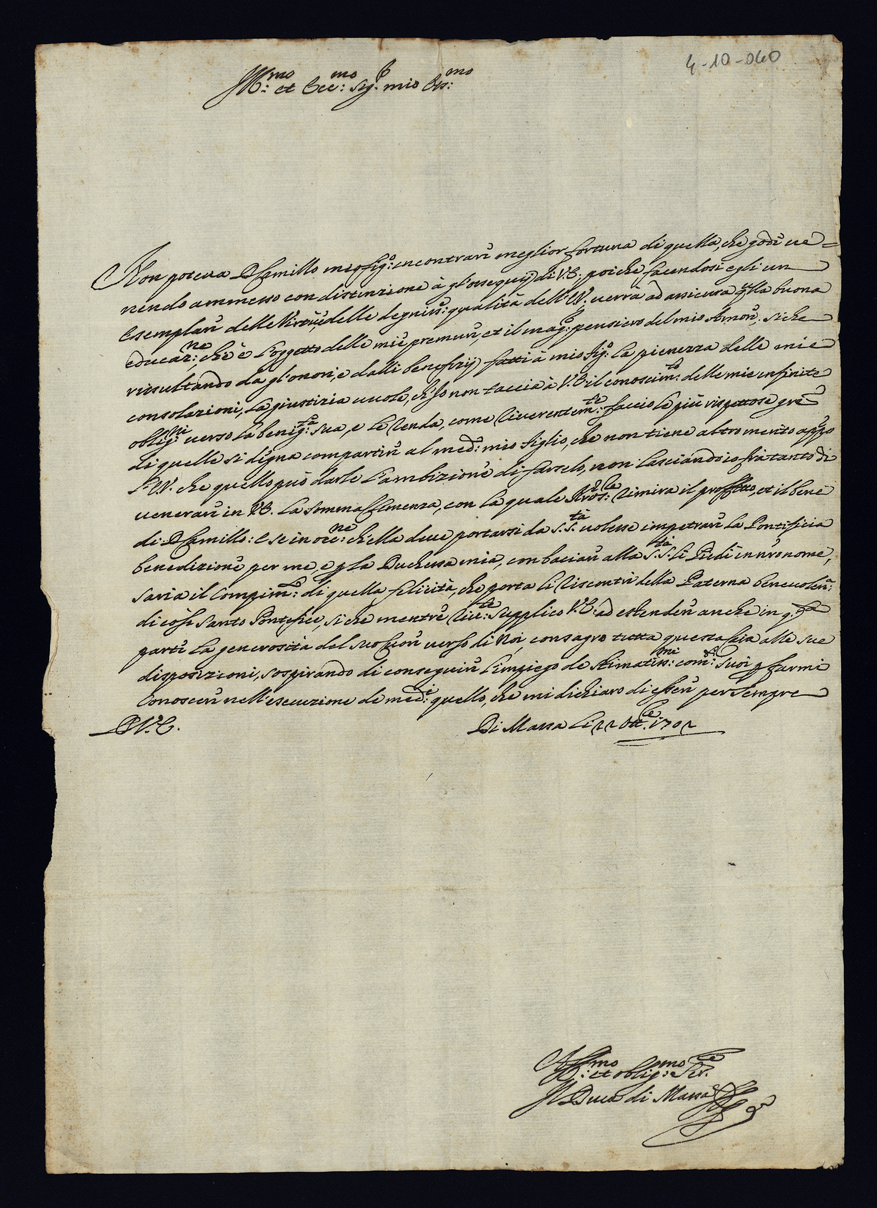 4-10-040
Ill:mo et Ecc:mo Sig:r mio Oss:mo
Non poteva D Camillo mio fig:o incontrare meglior fortuna di quella, che gode ve=
nendo ammesso con distinzione à gl'ossequij di V.E. poiche facendosi egli un
esemplare delle Virtù, e delle qualità dell' verrà ad assicurar q:lla buona
educaz:ne che è l'oggetto delle mie premure, et il mag:r pensiero del mio Amore; si che
risultando da gl'onori, e dalli beneficij fatti à mio fig:o la pienezza delle mie
consolazioni, la giustizia vuole, ch'Io non taccia à V.E. il conoscim:to delle mie infinite
oblig:ni verso la benig:tà sua, e le renda, come riverentem:te faccio le più rispettose
di quelle si digna compartire al med:o mio figlio, che non tiene altro merito appo
l' che quello può darle l'ambizione di farselo, non lasciando io fra tanto di
venerare in V.E. la somma Clemenza, con la quale rimira il profitto, et il bene
di D Camillo: e se in occ:ne ch'ella deve portarsi da S.S.tà volesse impetrare la Pontificia
benedizione per me, e p la Duchessa mia, con baciare alla S:tà S: li Piedi in nro nome,
saria il compim:to di quella felicità, che porta li riscontri della Paterna benevolen:
di così Santo Pontefice, si che mentre supplico V.E. ad estendere anche in q:sta
parte la generosità del suo cuore verso di Noi, consagro tutta questa Casa alle sue
disposizioni, sospirando di conseguire l'impiego de stimatiss:mi com:di suoi p farmi
conoscere nell'esecuzione de med:i quello, che mi dichiaro di essere per sempre
D V.E. Di Massa li 22 Ott:re 1702
Aff:mo et oblig:mo Ser:re
Il Duca di Massa